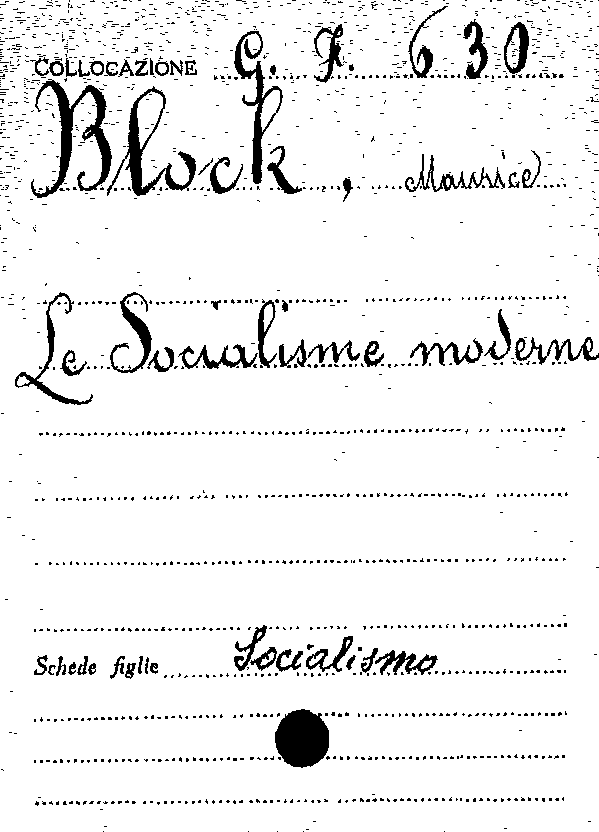 COLLOCAZIONE G. F. 630
Block, Maurice
Le Socialisme moderne
Schede figlie Socialismo